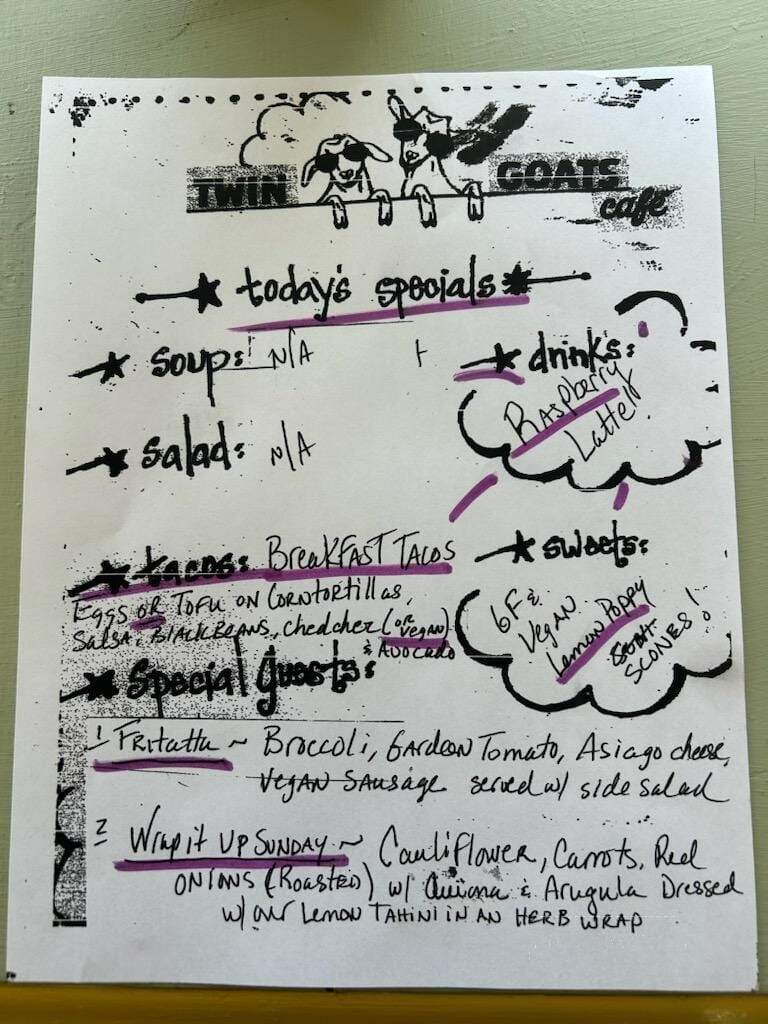 TWIN GOATS
café
today's specials
soup: N/A
drink's:
Raspberry
Latte!
salad: N/A
tacos: BREAKFAST TACOS
EGGS OR TOFU ON CORN TORTILLAS,
SALSA, BLACK BEANS, chedcher (OR VEGAN)
& AVOCADO
sweets:
GF &
VEGAN
Lemon POPPY
SEED
SCONES!
Special Guests:
1 FRITATTA ~ BROCCOLI, GARDEON TOMATO, ASIAGO cheese,
VEGAN SAUSAGE served w/ side salad
2 Wrap it UP SUNDAY ~ Cauliflower, Carrots, Red
ONIONS (ROASTED) w/ Quiona & Arugula Dressed
w/ our LEMON TAHINI IN AN HERB WRAP